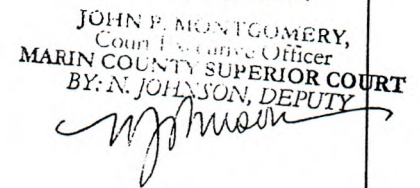 JOHN P. MONTGOMERY,
Court Executive Officer
MARIN COUNTY SUPERIOR COURT
BY: N. JOHNSON, DEPUTY
N Johnson